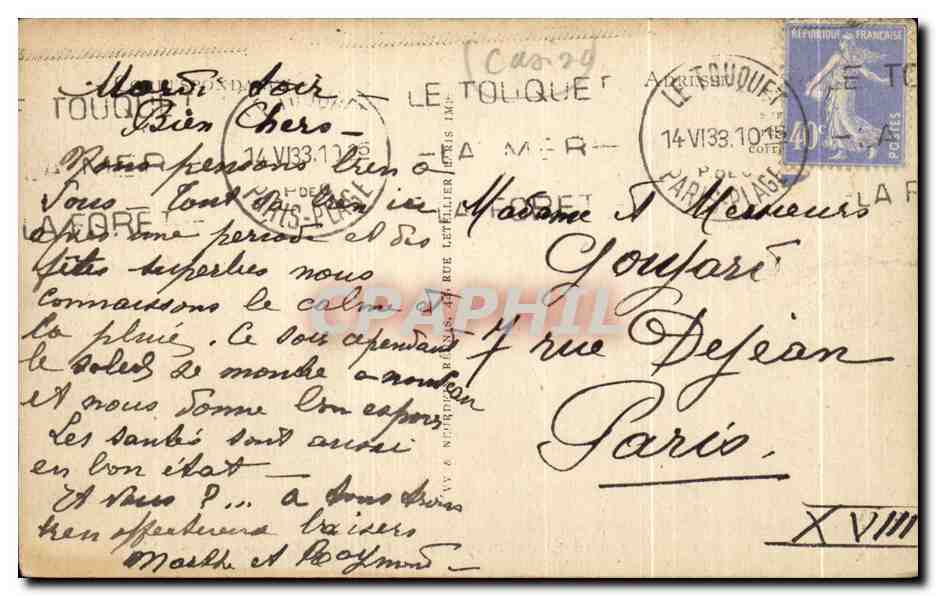 Casino
CORRESPONDANCE
ADRESSE
RÉPUBLIQUE FRANÇAISE
40c
POSTES
TOUQUET
LA MER
LA FORET
LE TOUQUET
14 VI 33. 10 15
PARIS-PLAGE
LE TOUQUET
LA MER
LA FORET
LE TOUQUET
14 VI 33. 10 15
PARIS-PLAGE
LE TO
LA
LA F
Mardi soir
Bien Chers
Nous pensons bien à
vous. Tout va bien ici
après une période et des
fêtes superbes nous
connaissons le calme et
la pluie. Ce soir cependant
le soleil se montre a nouveau
et nous donne bon espoir
Les santés sont aussi
en bon état
Et vous ?... a tous trois
bien affectueux baisers
Marthe et Raymond
LEVY & NEURDEIN RÉUNIS, 44, RUE LETELLIER, PARIS IMP.
Madame et Messieurs
Goujaré
7 rue Dejean
Paris.
XVIII
CPAPHIL